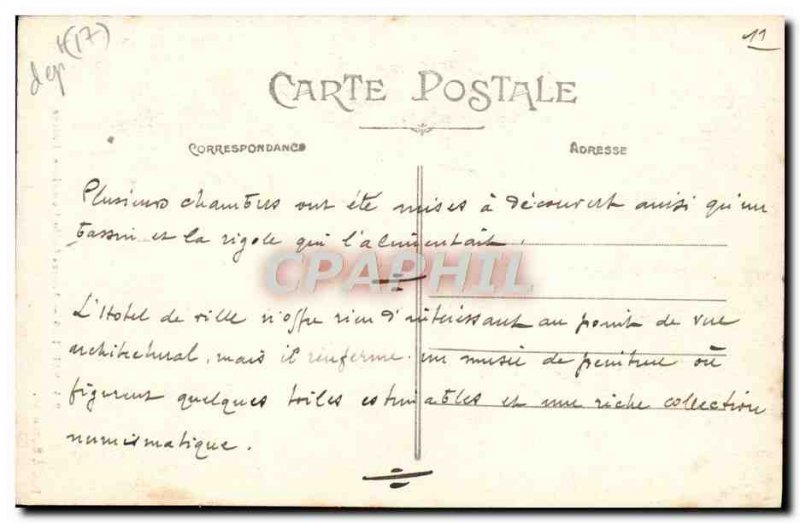 dep t (17)
11
CARTE POSTALE
CORRESPONDANCE
ADRESSE
Plusieurs chambres ont été mises à découvert ainsi qu'un
bassin et la rigole qui l'alimentait.
CPAPHIL
L'Hotel de ville n'offre rien d'intéressant au point de vue
architectural, mais il renferme un musée de peinture où
figurent quelques toiles estimables et une riche collection
numismatique.